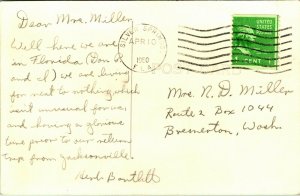 Dear Mrs. Miller
Well here we are
in Florida (Dan S
and I) we are living
for next to nothing which
isn't unusual for us
and having a glorious
time prior to our return
trip from Jacksonville.
Herb Bartlett
SILVER SPRINGS
APR 10
1950
FLA.
UNITED
STATES
1 CENT
POST CARD
Mrs. N. D. Miller
Route 2 Box 1044
Bremerton, Wash.